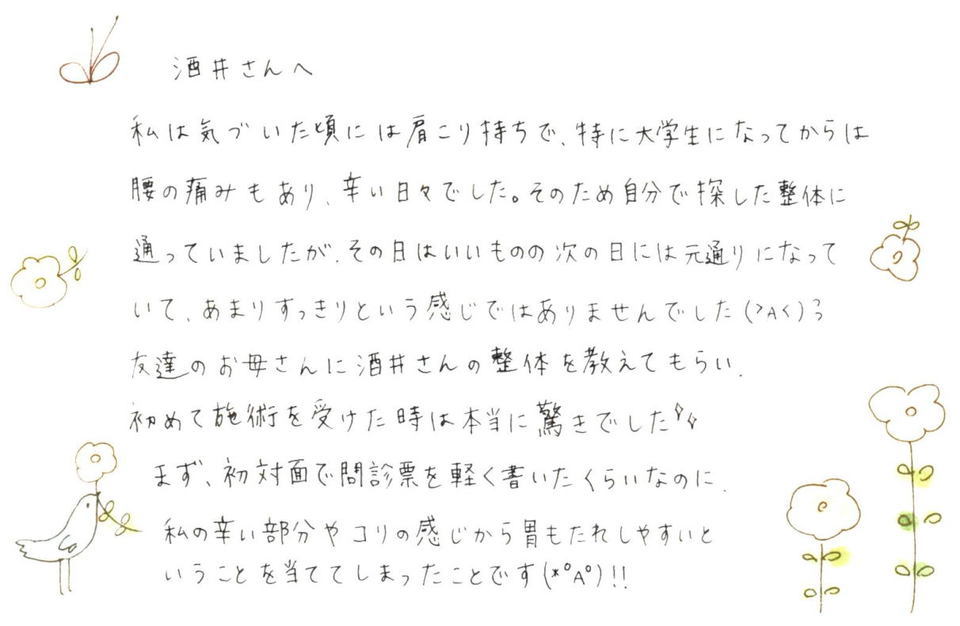 酒井さんへ
私は気づいた頃には肩こり持ちで、特に大学生になってからは
腰の痛みもあり、辛い日々でした。そのため自分で探した整体に
通っていましたが、その日はいいものの次の日には元通りになって
いて、あまりすっきりという感じではありませんでした(>A<)
友達のお母さんに酒井さんの整体を教えてもらい、
初めて施術を受けた時は本当に驚きでした
まず、初対面で問診票を軽く書いたくらいなのに、
私の辛い部分やコリの感じから胃もたれしやすいと
いうことを当ててしまったことです(*°A°)!!